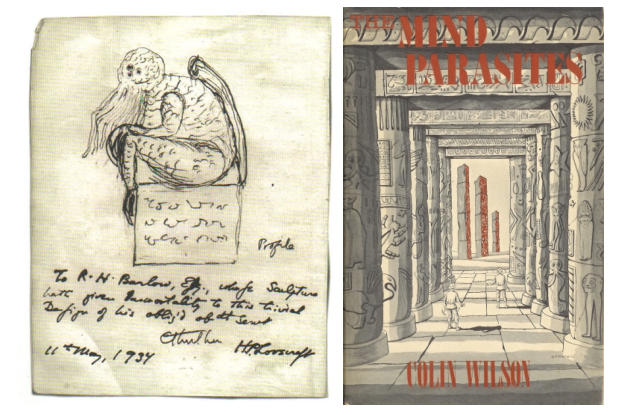 Profile
To R. H. Barlow, Esq., whose Sculpture
hath given Immortality to this trivial
Design of his oblig'd obt Servt
Cthulhu
11th May, 1934
H P Lovecraft
THE MIND
PARASITES
COLIN WILSON